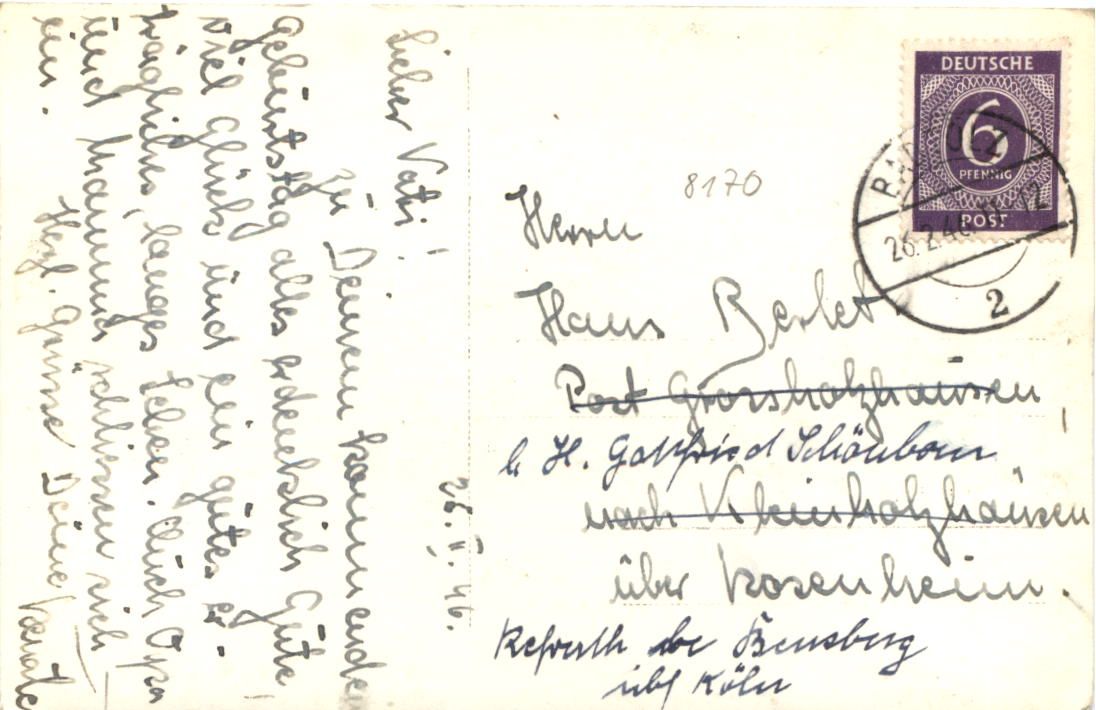 26. II. 46.
Lieber Vati!
Zu Deinem kommenden
Geburtstag alles erdenklich Gute,
viel Glück und ein gutes er-
trägliches, langes Leben. Auch Opa
und Mammus schliessen sich
ein.
Herzl. Grüsse Deine
DEUTSCHE
6
PFENNIG
POST
26.2.46
2
8170
Herrn
Hans Berlet
Post Grossholzhausen,
b H. Gottfried Schönborn
nach Kleinholzhausen
über Rosenheim.
Refrath be Bensberg
übr Köln